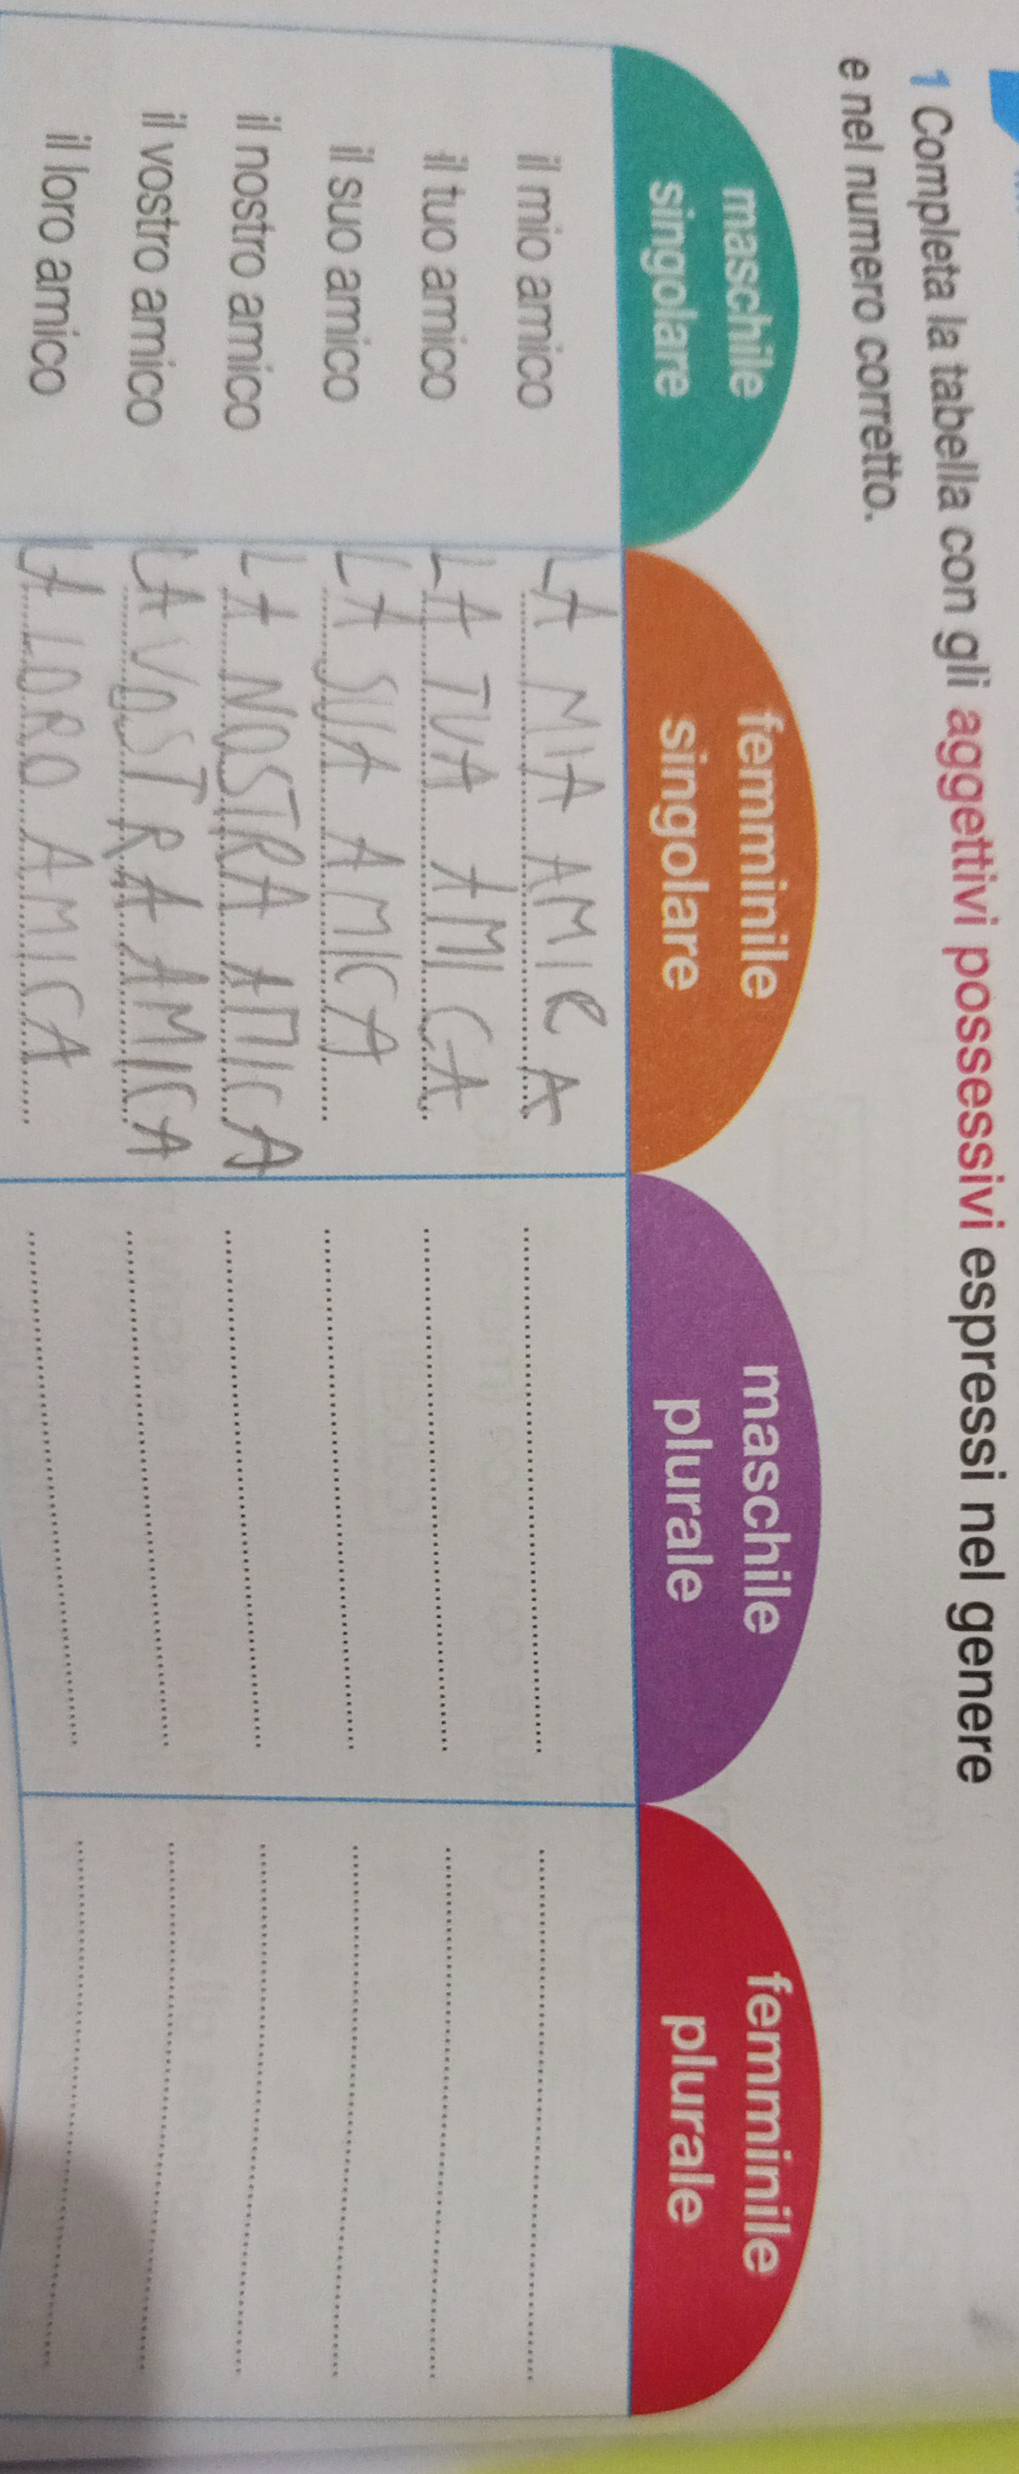 1 Completa la tabella con gli aggettivi possessivi espressi nel genere
e nel numero corretto.
maschile singolare femminile singolare maschile plurale femminile plurale
il mio amico LA MIA AMICA
il tuo amico LA TUA AMICA
il suo amico LA SUA AMICA
il nostro amico LA NOSTRA AMICA
il vostro amico LA VOSTRA AMICA
il loro amico LA LORO AMICA